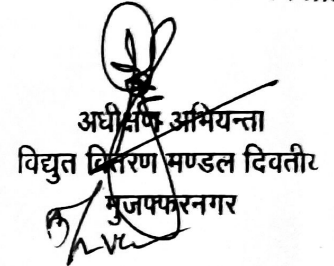 अधीक्षण अभियन्ता
विद्युत वितरण मण्डल दिवतीर
मुजफ्फरनगर